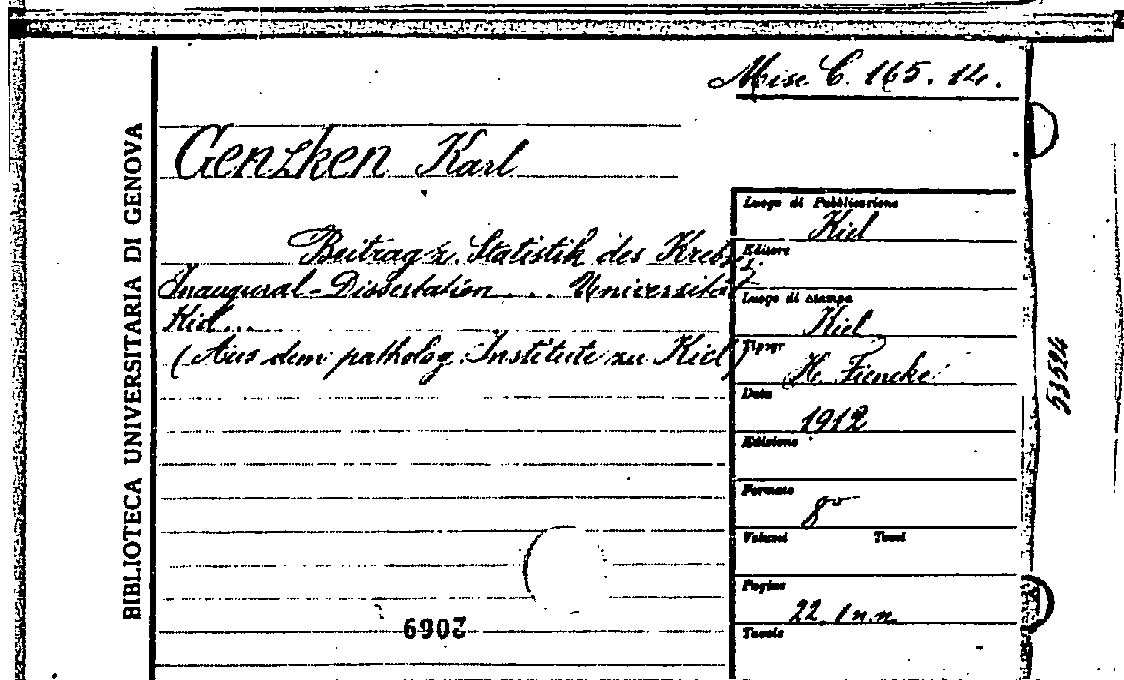 Misc C. 165. 12.
BIBLIOTECA UNIVERSITARIA DI GENOVA
Genzken Karl
Beitrag z. Statistik des Krebses.
Inaugural-Dissertation... Universität
Kiel...
(Aus dem patholog. Institute zu Kiel)
Luogo di Pubblicazione
Kiel
Editore
Luogo di stampa
Kiel
Tipogr
H. Fiencke
Data
1912
Edizione
Formato
8°
Volumi Tomi
Pagine
22, 1 n.n.
Tavole
53524
2069